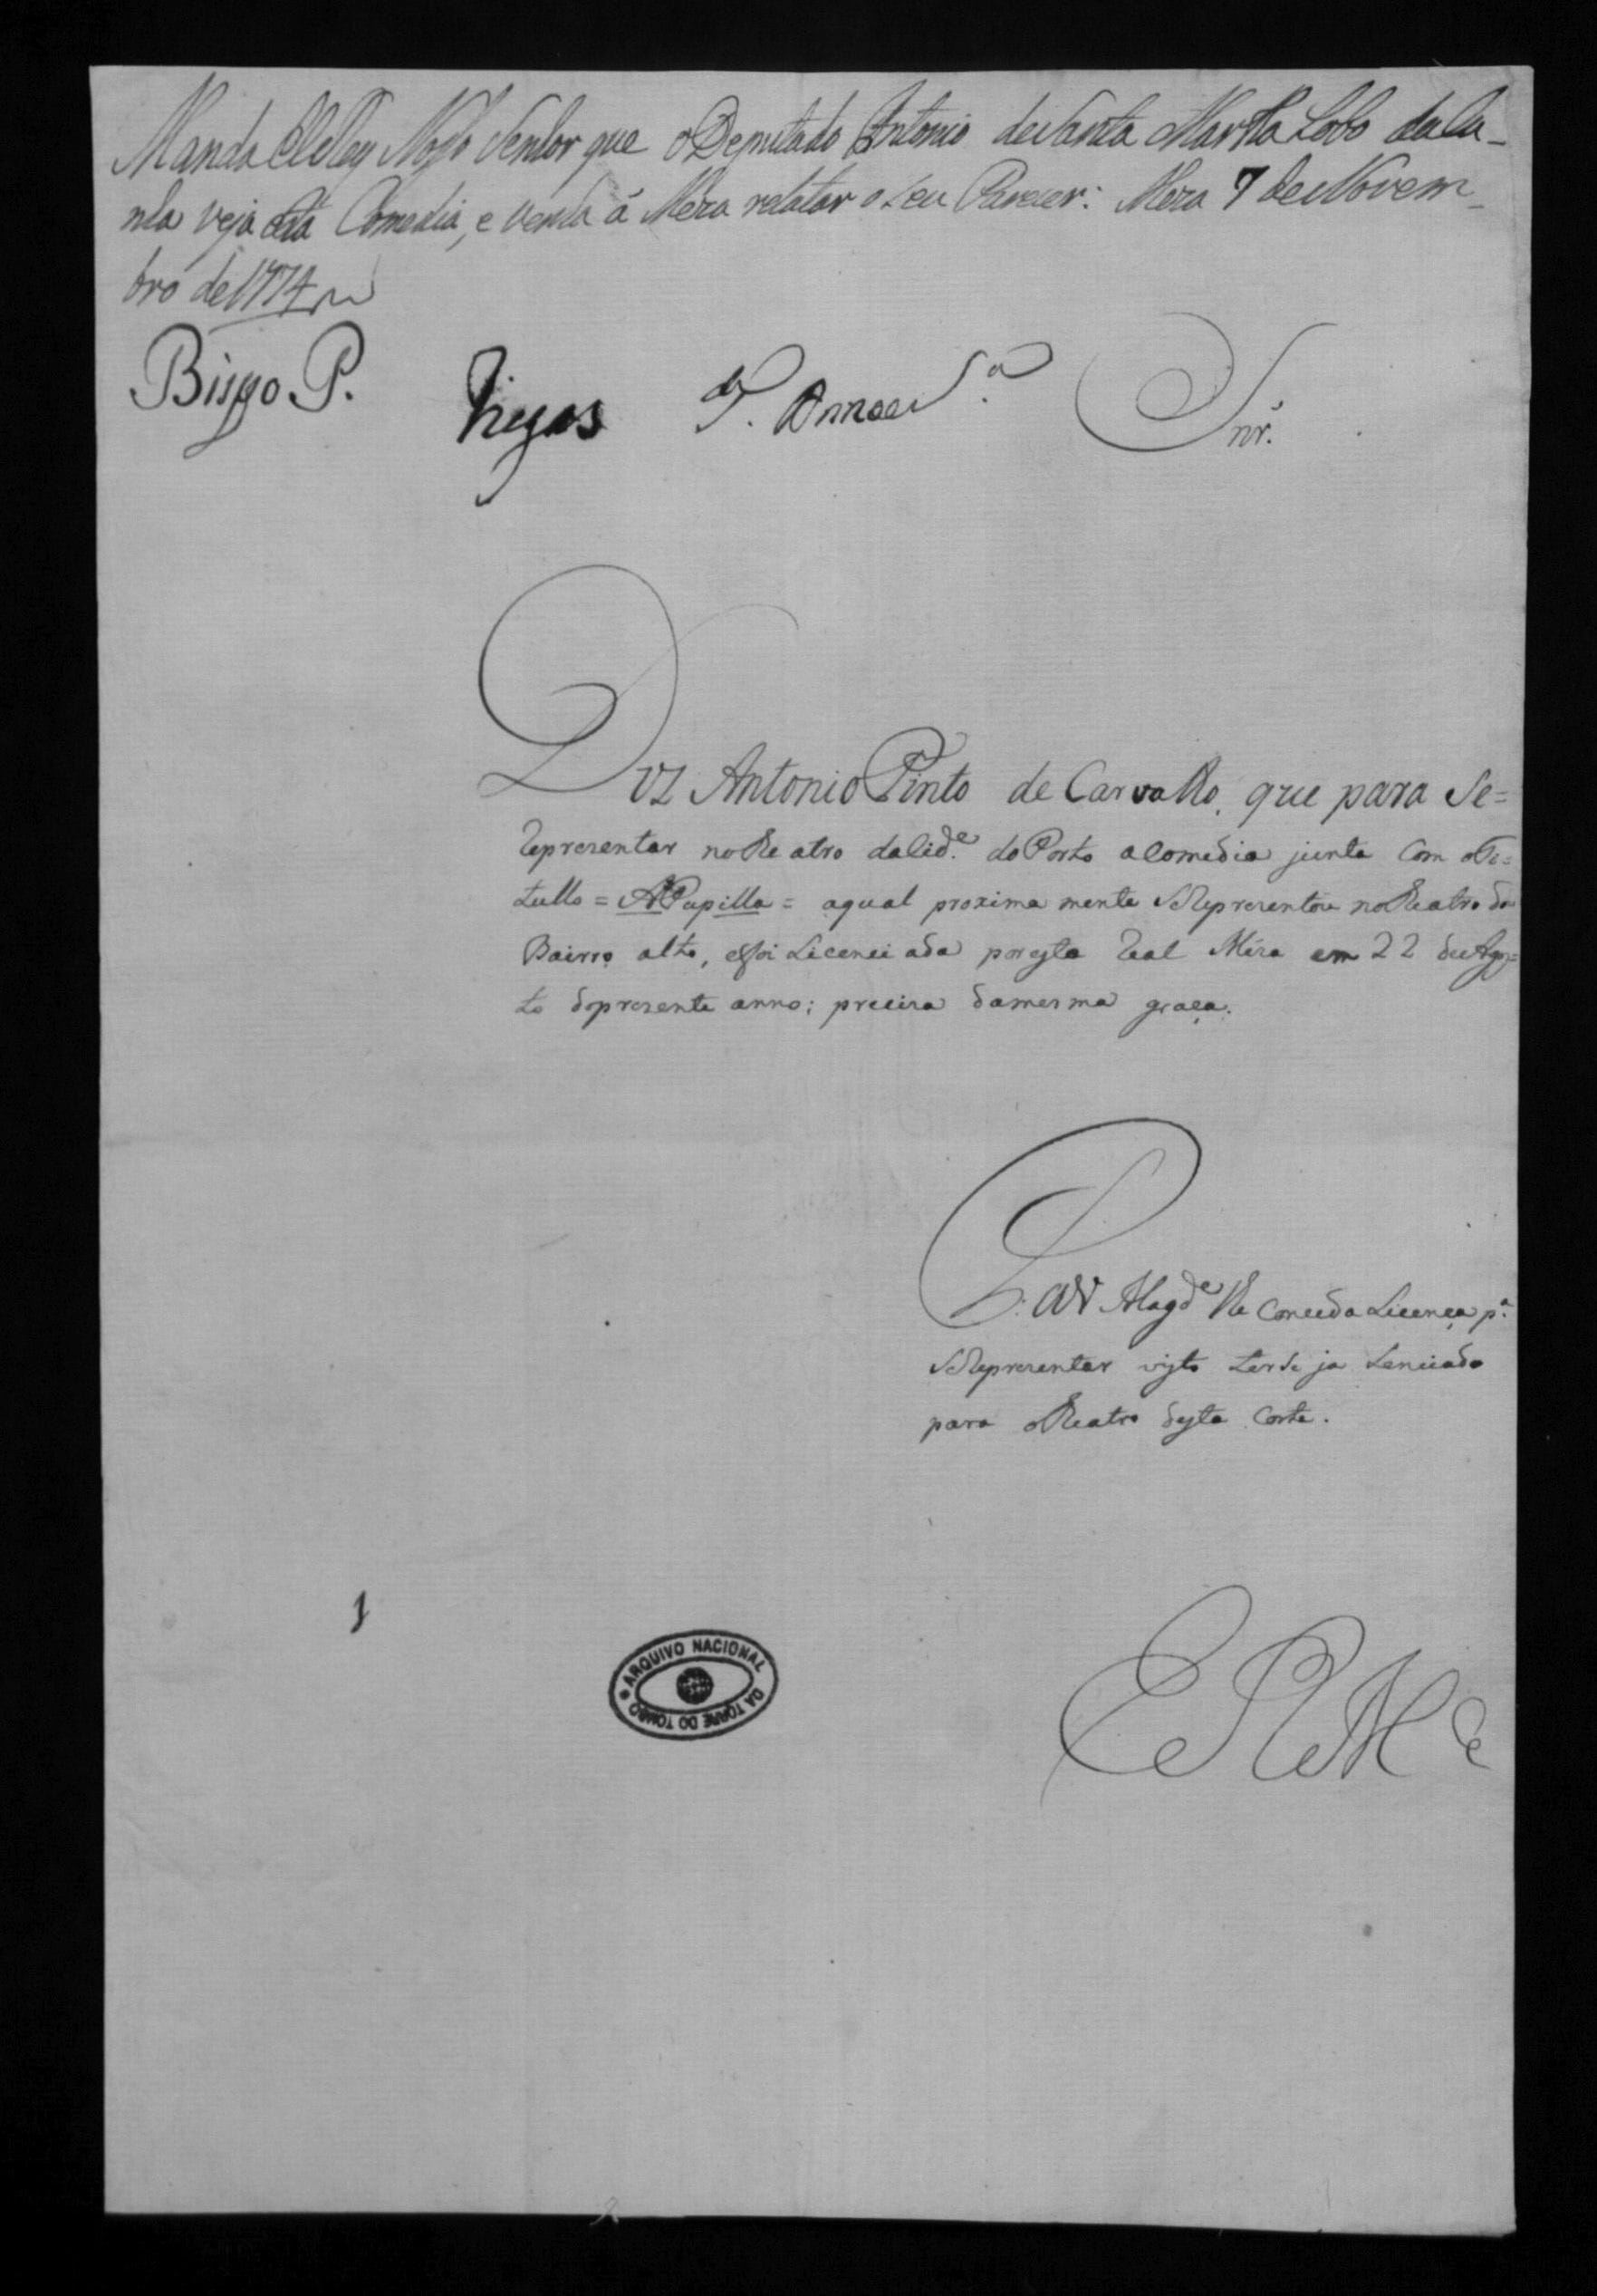 Manda ElRey Nosso Senhor que o Deputado Antonio de Santa Martha Lobo da Cu-
nha veja esta Comedia, e venha á Meza relatar o seu Parecer: Meza 7 de Novem-
bro de 1774
Bispo P.
Viegas
Snr.
Diz Antonio Pinto de Carvalho, que para Se=
Reprezentar no Theatro da Cid.e do Porto a Comedia junta Com o Ti=
tullo = A Pupilla = a qual proxima mente se Reprezentou no Theatro do
Bairro alto, e foi Licenciada por esta Real Meza em 22 de Agos=
to do prezente anno; preciza da mesma graça.
P. a V. Mag.de lhe Conceda Licença p.a
se Reprezentar visto ter se ja Lenciado
para o Theatro desta Corte.
E R M.ce
1
ARQUIVO NACIONAL DA TORRE DO TOMBO